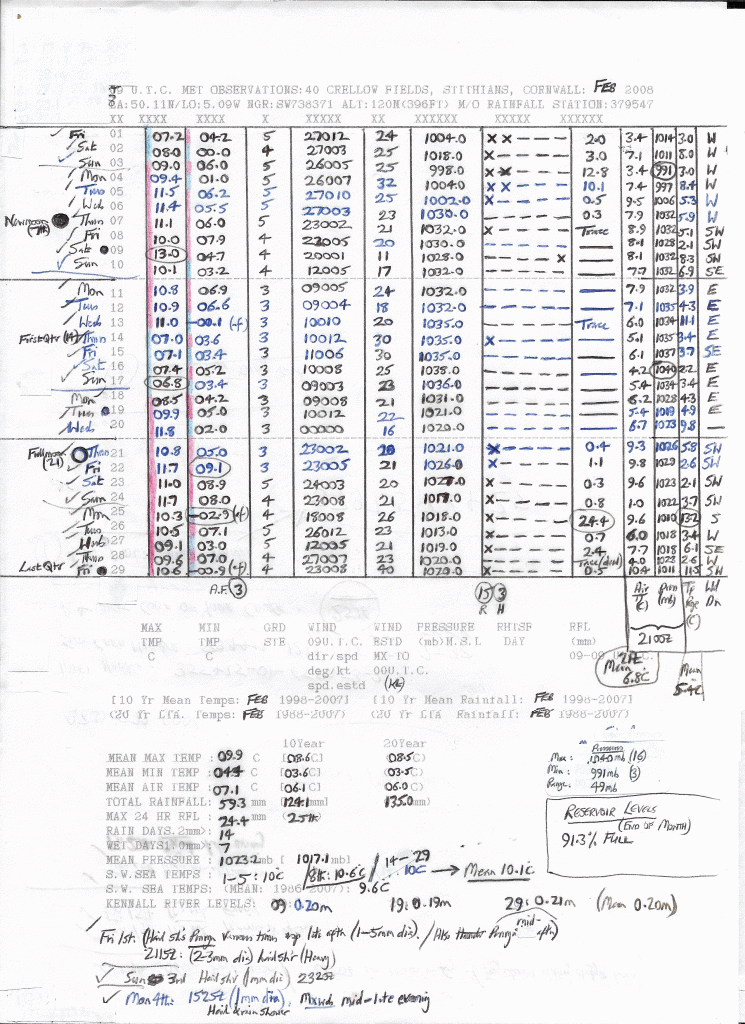 09 U.T.C. MET OBSERVATIONS:40 CRELLOW FIELDS, STITHIANS, CORNWALL: FEB 2008
LA:50.11N/LO:5.09W NGR:SW738371 ALT:120M(396FT) M/O RAINFALL STATION:379547
XX XXXX XXXX X XXXXX XX XXXXXX XXXXX XXXXXX
Fri 01 07.2 04.2 5 27012 24 1004.0 XX--- 2.0 3.4 1014 3.0 W
Sat 02 08.0 00.0 4 27003 25 1018.0 X---- 3.0 7.1 1011 8.0 W
Sun 03 09.0 06.0 5 26005 25 998.0 XX--- 12.8 3.4 991 3.0 W
Mon 04 09.4 01.0 5 26007 32 1004.0 XX--- 10.1 7.4 997 8.4 W
Tues 05 11.5 06.2 5 27010 25 1002.0 X---- 0.5 9.5 1006 5.3 W
Wed 06 11.4 05.5 5 27003 23 1030.0 X---- 0.3 7.9 1032 5.9 W
Newmoon (7th) Thurs 07 11.1 06.0 5 23002 21 1032.0 X---- Trace 8.9 1032 5.1 SW
Fri 08 10.0 07.9 4 23005 20 1030.0 ----- — 8.1 1028 2.1 SW
Sat 09 13.0 04.7 4 20001 11 1028.0 ----X — 8.1 1032 8.3 SW
Sun 10 10.1 03.2 4 12005 17 1032.0 ----- — 7.7 1032 6.9 SE
Mon 11 10.8 06.9 3 09005 24 1032.0 ----- — 7.9 1032 3.9 E
Tues 12 10.9 06.6 3 09004 18 1032.0 ----- — 7.1 1035 4.3 E
Wed 13 11.0 -00.1 (Af) 3 10010 20 1035.0 ----- Trace 6.0 1034 11.1 E
First Qtr (14) Thurs 14 07.0 03.6 3 10012 30 1035.0 X---- — 5.1 1035 3.4 E
Fri 15 07.1 03.4 3 11006 30 1035.0 ----- — 6.1 1037 3.7 SE
Sat 16 07.4 05.2 3 10008 25 1038.0 ----- — 4.2 1040 2.2 E
Sun 17 06.8 03.4 3 09003 23 1036.0 ----- — 5.4 1034 3.4 E
Mon 18 08.5 04.2 3 09008 21 1031.0 ----- — 6.2 1028 4.3 E
Tues 19 09.9 05.0 3 10012 22 1021.0 ----- — 5.4 1019 4.9 E
Wed 20 11.8 02.0 3 00000 16 1020.0 ----- — 6.7 1023 9.8 —
Full moon (21) Thurs 21 10.8 05.0 3 23002 20 1021.0 X---- 0.4 9.3 1026 5.8 SW
Fri 22 11.7 09.1 3 23005 21 1026.0 X---- 1.1 9.8 1029 2.6 SW
Sat 23 11.0 08.9 5 24003 20 1027.0 X---- 0.3 9.6 1023 2.1 SW
Sun 24 11.7 08.0 4 23008 21 1018.0 X---- 0.8 1.0 1022 3.7 SW
Mon 25 10.3 -02.9 (Af) 4 18008 26 1018.0 X---- 24.4 9.6 1010 13.2 S
Tues 26 10.5 07.1 5 26012 23 1013.0 X---- 0.7 6.0 1018 3.4 W
Wed 27 09.1 03.0 5 12005 21 1019.0 X---- 2.4 7.7 1018 6.1 SE
Last Qtr Thurs 28 09.6 07.0 4 27007 23 1020.0 X---- Trace (dew) 4.0 1023 2.6 W
Fri 29 10.6 -00.9 (Af) 4 23008 40 1020.0 X---- 0.5 10.4 1011 11.5 SW
A.F. 3 15 3
R H
Air (C) Prss (mb) Tp Rge (C) Wd Dn
2100Z
MAX MIN GRD WIND WIND PRESSURE RHTSF RFL
TMP TMP STE 09U.T.C. ESTD (mb)M.S.L DAY (mm)
C C dir/spd MX TO 09-09
deg/kt 00U.T.C.
spd.estd (kt)
Mean 6.8C Mean 5.4C
[10 Yr Mean Temps: FEB 1998-2007] [10 Yr Mean Rainfall: FEB 1998-2007]
(20 Yr LTA. Temps: FEB 1988-2007) (20 Yr LTA Rainfall: FEB 1988-2007)
10Year 20Year
MEAN MAX TEMP : 09.9 C [08.6C] (08.5C)
MEAN MIN TEMP : 04.4 C [03.6C] (03.5C)
MEAN AIR TEMP : 07.1 C [06.1C] (06.0C)
TOTAL RAINFALL: 59.3 mm (124.1mm) (135.0mm)
MAX 24 HR RFL : 24.4 mm (25th)
RAIN DAYS.2mm>: 14
WET DAYS1.0mm>: 7
MEAN PRESSURE : 1023.2 mb [ 1017.1 mb]
S.W.SEA TEMPS : 1-5: 10C / 8th: 10.6C / 14-29 10C → Mean 10.1C
S.W. SEA TEMPS: (MEAN: 1986-2007): 9.6C
KENNALL RIVER LEVELS: 09: 0.20m 19: 0.19m 29: 0.21m (Mean 0.20m)
Pressures
Max: 1040mb (16)
Min: 991mb (3)
Range: 49mb
RESERVOIR LEVELS
(END OF MONTH)
91.3% FULL
Fri 1st. (Hail sh's various times late aftn (1-5mm dia). / Also mid-aftn)
2115Z: (2-3mm dia) hail sh'r (Heavy)
Sun 3rd Hail sh'r (1mm dia) 2325Z
Mon 4th: 1525Z (1mm dia), Mxed, mid-late evening
Hail & rain shower